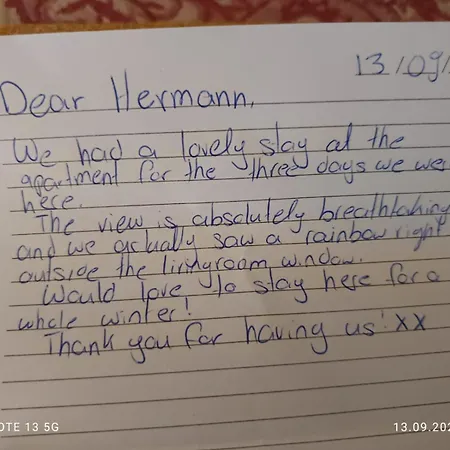 13/09/
Dear Hermann,
We had a lovely stay at the
apartment for the three days we we
here.
The view is absolutely breathtaking
and we actually saw a rainbow right
outside the livingroom window.
Would love to stay here for a
whole winter!
Thank you for having us! xx
OTE 13 5G
13.09.202